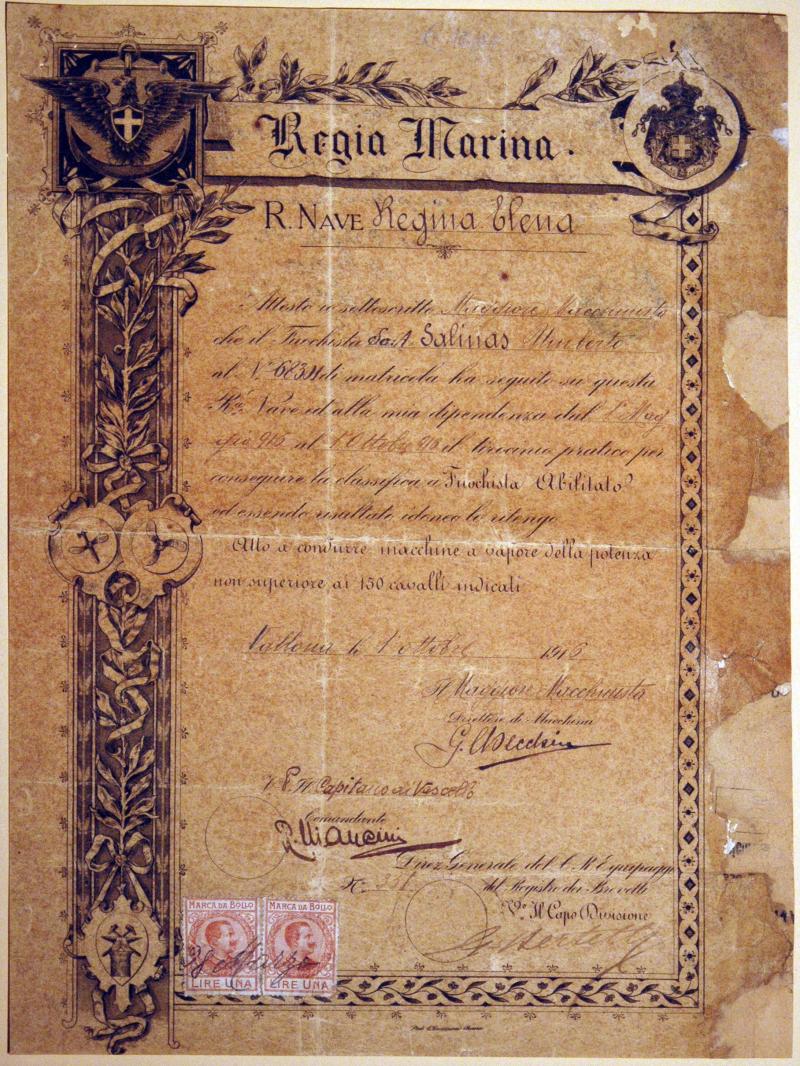 Regia Marina.
R. NAVE Regina Elena
Attesto io sottoscritto Maggiore Macchinista
che il Fuochista Salinas Umberto
al N° di matricola ha seguito su questa
Ra. Nave ed alla mia dipendenza dal 1° Mag
gio 915 al 1° Ottobre 916 il tirocinio pratico per
conseguire la classifica di Fuochista Abilitato
ed essendo risultato idoneo lo ritengo
Atto a condurre macchine a vapore della potenza
non superiore ai 150 cavalli indicati
Vallona li 1° ottobre 1916
Il Maggiore Macchinista
Direttore di Macchina
Il Capitano di Vascello
Comandante
R. Mancini
Direz Generale del C. R. Equipaggi
N. del Registro dei Brevetti
V° Il Capo Divisione
MARCA DA BOLLO MARCA DA BOLLO
Marzo
LIRE UNA LIRE UNA